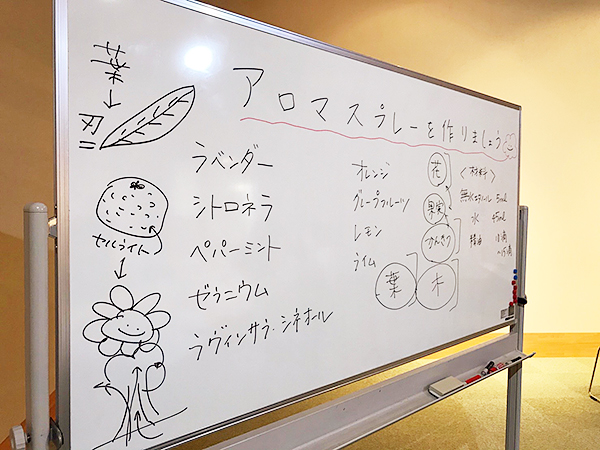 アロマスプレーを作りましょう
葉
刃
セルライト
ラベンダー
シトロネラ
ペパーミント
ゼラニウム
ラヴィンサラ・シネオール
オレンジ
グレープフルーツ
レモン
ライム
花
果実
かんきつ
葉
木
<材料>
無水エタノール 5ml
水 45ml
精油 10滴
〜15滴